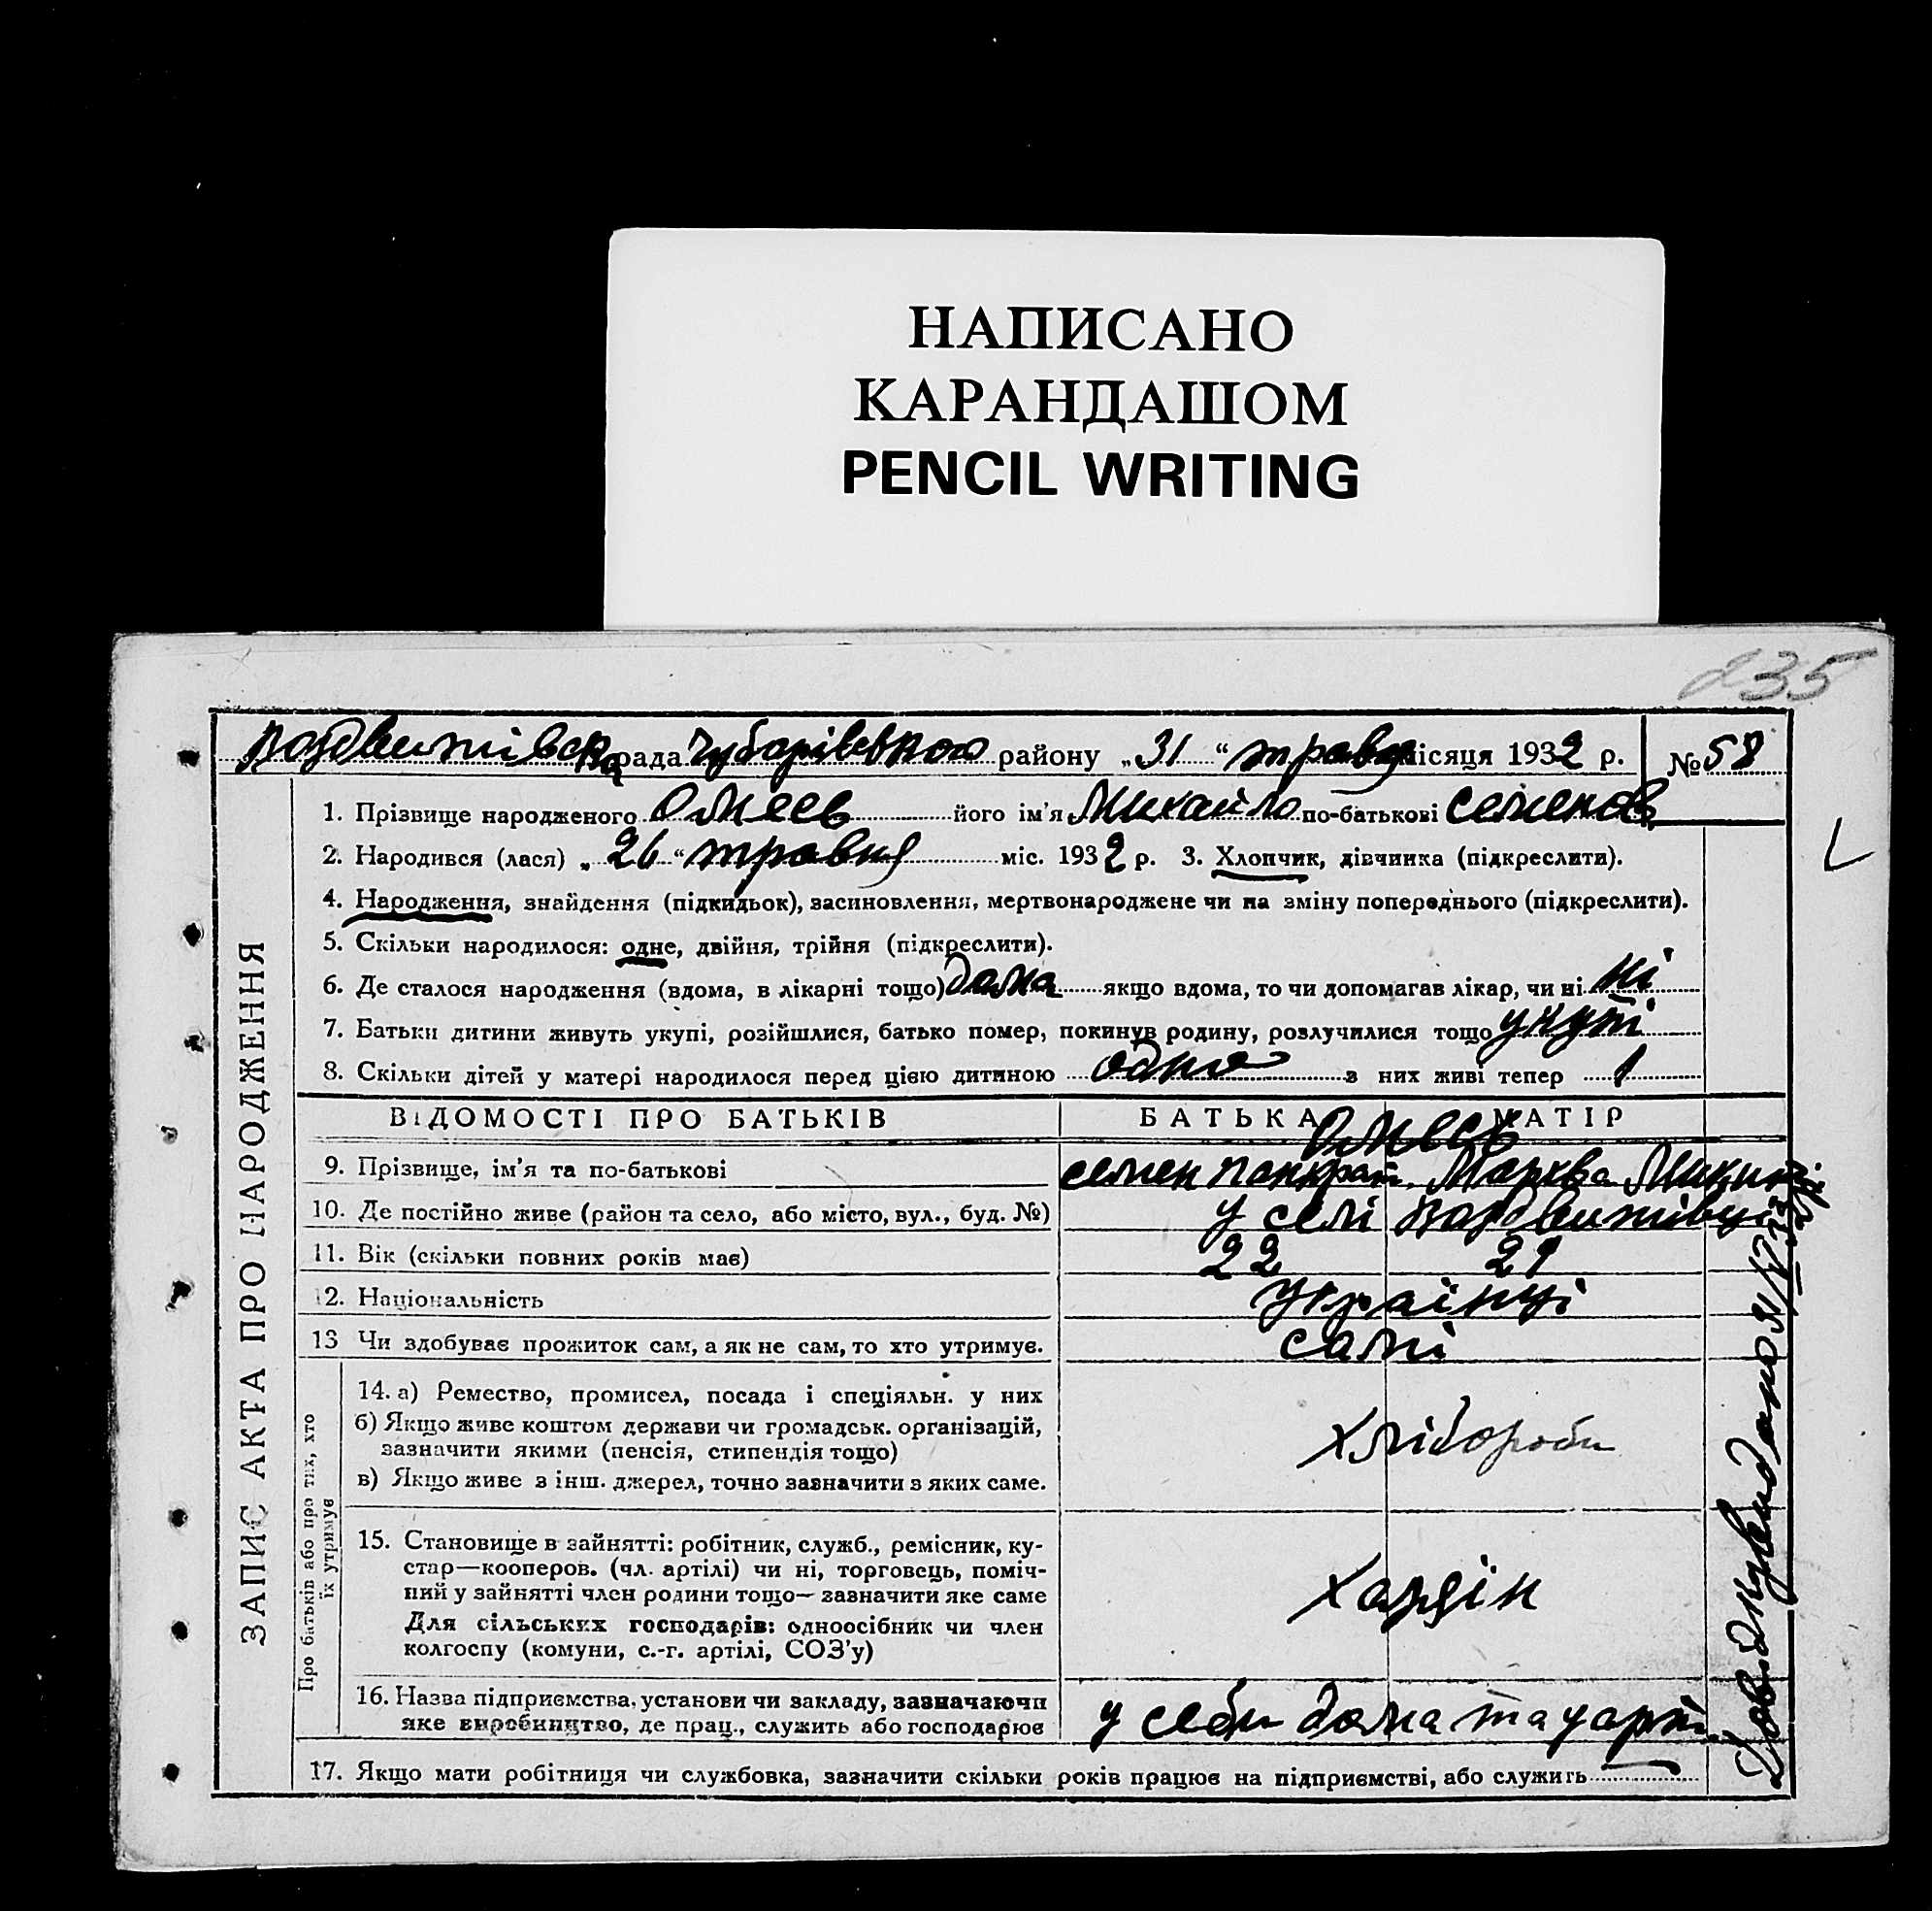 НАПИСАНО
КАРАНДАШОМ
PENCIL WRITING
235
рада Чубарівського району „31“ травня місяця 1932 р. № 58
1. Прізвище народженого Омесь його ім'я Михайло по-батькові Семенов
2. Народився (лася) „26“ травня міс. 1932 р. 3. Хлопчик, дівчинка (підкреслити).
4. Народження, знайдення (підкидьок), засиновлення, мертвонароджене чи на зміну попереднього (підкреслити).
5. Скільки народилося: одне, двійня, трійня (підкреслити).
6. Де сталося народження (вдома, в лікарні тощо) дома якщо вдома, то чи допомагав лікар, чи ні ні
7. Батьки дитини живуть укупі, розійшлися, батько помер, покинув родину, розлучилися тощо укупі
8. Скільки дітей у матері народилося перед цією дитиною одно з них живі тепер 1
ВІДОМОСТІ ПРО БАТЬКІВ БАТЬКА МАТІР
Омесь
9. Прізвище, ім'я та по-батькові Семен Панкрат. Мархва Микит
10. Де постійно живе (район та село, або місто, вул., буд. №) у селі
11. Вік (скільки повних років має) 22 21
12. Національність Українці
13 Чи здобуває прожиток сам, а як не сам, то хто утримує. самі
14. а) Ремество, промисел, посада і спеціяльн. у них
б) Якщо живе коштом держави чи громадськ. організацій,
зазначити якими (пенсія, стипендія тощо)
в) Якщо живе з інш. джерел, точно зазначити з яких саме.
Хлібороби
15. Становище в зайнятті: робітник, служб., ремісник, ку-
стар—кооперов. (чл. артілі) чи ні, торговець, поміч-
ний у зайнятті член родини тощо— зазначити яке саме
Для сільських господарів: одноосібник чи член
колгоспу (комуни, с.-г. артілі, СОЗ'у)
16. Назва підприємства, установи чи закладу, зазначаючи
яке виробництво, де прац., служить або господарює
у себи дома та у
17. Якщо мати робітниця чи службовка, зазначити скільки років працює на підприємстві, або служить —
ЗАПИС АКТА ПРО НАРОДЖЕННЯ
Про батьків або про тих, хто
їх утримує
Довідку видано 31/V 32